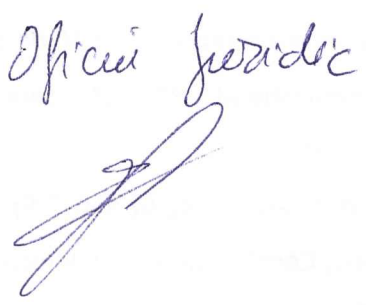 Oficiul Juridic